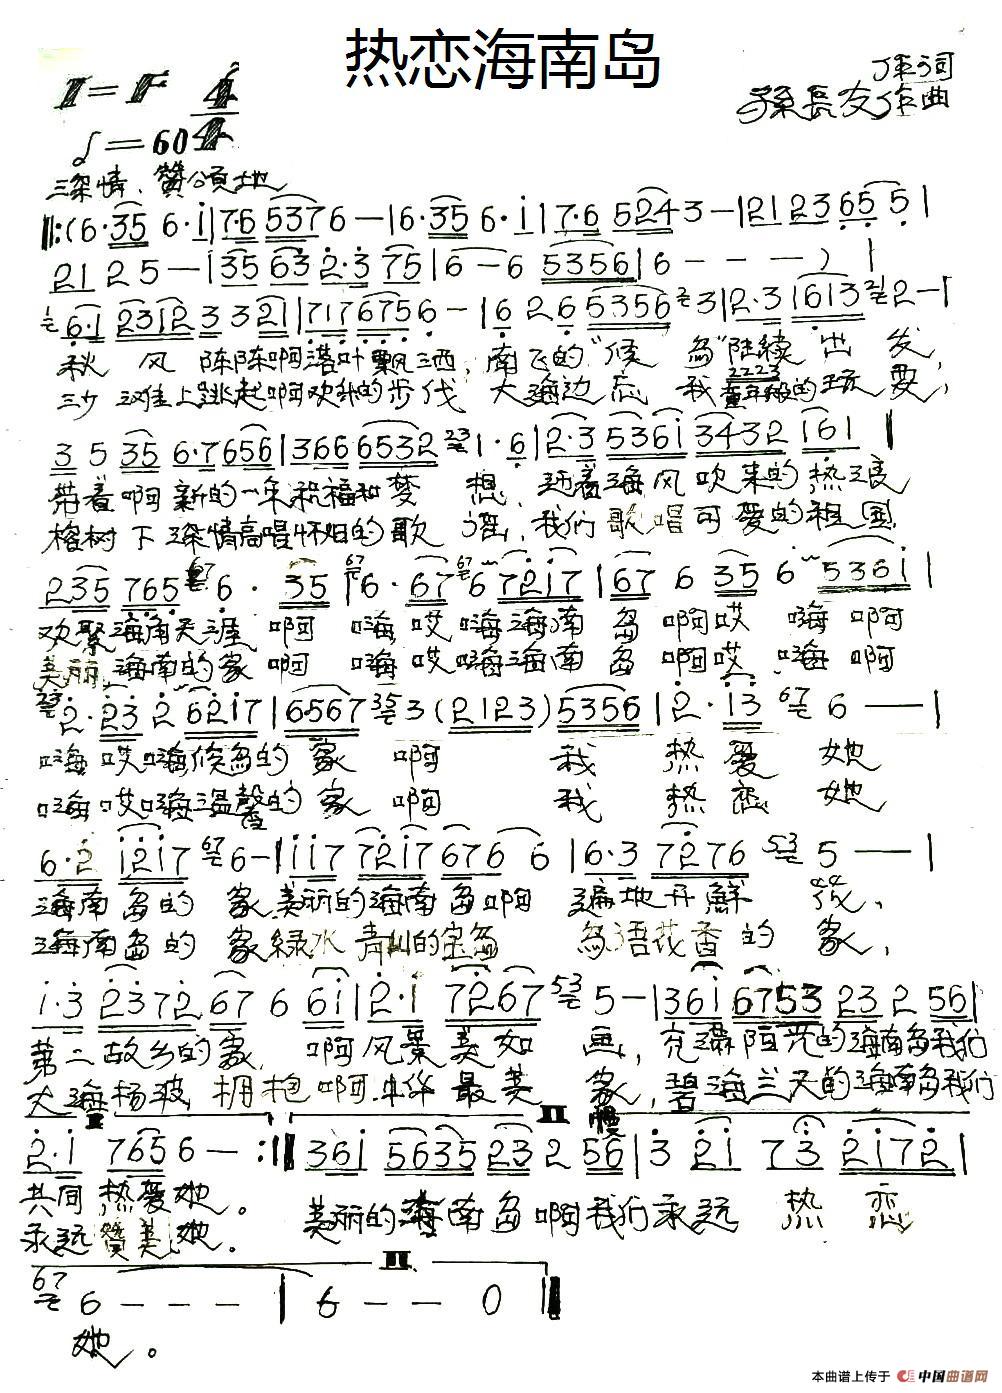 热恋海南岛
1=F 4/4
作词
孫長友作曲
♩=60
深情、赞颂地
‖:(6·35 6·i|7·6 5376-|6·35 6·i|7·6 524 3-|21 23 65 5|
21 2 5-|35 63 2·3 75|6-6 5356|6---)|
6·1 2312 3 3 21|717 675 6-|6 2 6 5356 3|2·3 1613 2-|
秋风阵阵啊落叶飘洒,南飞的"候鸟"陆续出发,
沙滩上跳起啊欢乐的步伐 大海边忘我童年般的玩耍,
3 5 35 6·7 656|366 6532 1·6|2·3 536i 3432 161|
带着啊新的一年祝福和梦想,迎着海风吹来的热浪
榕树下深情高唱怀旧的歌谣,我们歌唱可爱的祖国
235 765 6· 35|6· 67 6 72i7|67 6 35 6 536i|
欢聚海南天涯啊 嗨哎嗨海南岛啊哎嗨啊
美丽海南的家啊 嗨哎嗨海南岛啊哎嗨啊
2·23 2 62i7|6·567 3(2123)5356|2·i3 6--|
嗨哎嗨候鸟的家啊 我热爱她
嗨哎嗨温馨的家啊 我热恋她
6·2 i2i7 6-|ii7 72i7 676 6|6·3 7276 5--|
海南岛的家美丽的海南岛啊 遍地开鲜花,
海南岛的家绿水青山的宝岛 鸟语花香的家,
i·3 2372 67 6 6i|2·i 7267 5-|36i 6753 23 2 56|
第二故乡的家,啊风景美如画,充满阳光的海南岛我们
大海杨波,拥抱啊 最美家,碧海兰天的海南岛我们
2·i 765 6-:‖36i 5635 23 2 56|3 2i 7 3 2i72|
共同热爱她。 美丽的海南岛啊我们永远热恋
永远赞美她。
6---|6--0‖
她。
本曲谱上传于 中国曲谱网